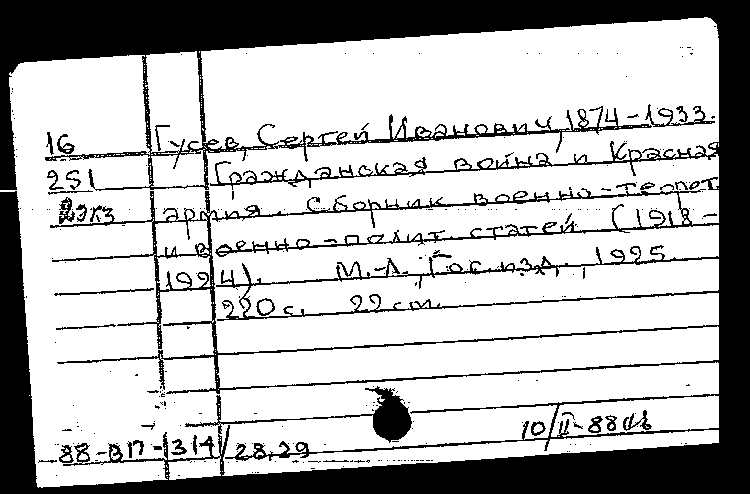 16 Гусев, Сергей Иванович, 1874-1933.
251 Гражданская война и Красная
2экз армия. Сборник военно-теорет.
и военно-полит. статей (1918-
1924). М.-Л., Гос.изд., 1925.
220 с. 22 cm.
88-ВП-1314/28,29 10/II-88